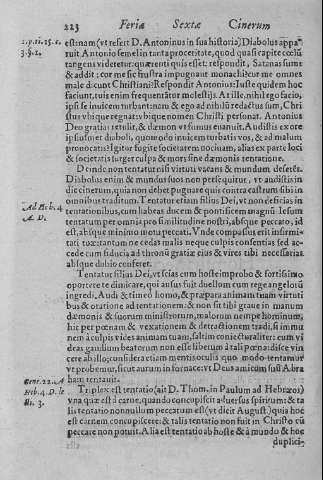 223 Feriæ Sextæ Cinerum
2.p.ti.25.c. est: nam (vt refert D. Antoninus in sua historia) Diabolus appa
3.§.2. ruit Antonio semel in tanta proceritate, quod quasi capite cœlũ
tangens videtet: quærenti quis esset: respondit, Satanas sum:
& addit: cor me sic frustra impugnant monachi: cur me omnes
male dicunt Christiani? Respondit Antonius: Iuste quidem hoc
faciunt, tuis enim frequenter molesti. At ille, nihil ego facio,
ipsi se inuicem turbant: nam & ego ad nihilũ redactus sum, Chri
stus vbique regnat: vbique nomen Christi personat. Antonius
Deo gratias retulit, & dæmon vt fumus euanuit. Audistis ex ore
ipsiusmet diaboli, quomodo inuicem turbatis vos, & ad malum
prouocatis? Igitur fugite societatem nociuam, alias ex parte loci
& societatis surget culpa & mors sine dæmonis tentatione.
Deinde non tentatur nisi virtuti vatans & mundum deserẽs.
Diabolus enim & mundus suos non persequitur, vt audistis in
die cinerum, quia non debet pugnare quis contra castrum sibi in
Ad Heb. 4 omnibus traditum. Tentatur etiam filius Dei, vt non deficias in
A. D. tentationibus, cum habeas ducem & pontificem magnũ Iesum
tentatum per omnia pro similitudine nostri, absque peccato, id
est, absque minimo motu peccati. Vnde compassus erit infirmi-
tati tuæ: tantum ne cedas malis neque culpis consentias sed ac-
cede cum fiducia ad thronũ gratiæ eius & vires tibi necessarias
absque dubio conferet.
Tentatur filius Dei, vt scias cum hoste improbo & fortissimo
oportere te dimicare, qui ausus fuit duellum cum rege angelorũ
ingredi. Audi & time ò homo, & præpara animam tuam virtuti
bus & oratione ad tentationem. & non sit tibi graue in manum
dæmonis & suorum ministrorum, malorum nempe hominum,
hic per pœnam & vexationem & detractionem tradi, si in mu
nem à culpis vices animam tuam, saltim conie cturaliter: cum vi
deas gaudium beatorum non esse liberum à tali pœna: disce vin
cere ab illo; considera etiam mentis oculis quo modo tentamur
vt probemur, sicut aurum in fornace: vt Deus amicum suũ Abra
Gene. 22. A ham tentauit.
Heb. 4. D. le Triplex est tentatio (ait D. Thom. in Paulum ad Hebræos)
cti. 3. vna quæ est à carne, quando concupiscit aduersus spiritum: & ta
lis tentatio non nullum peccatum est (vt dicit August.) quia hoc
est carnem concupiscere: & talis tentatio non fuit in Christo cũ
peccare non potuit. Alia est tentatio ab hoste & à mundo & hoc
duplici-